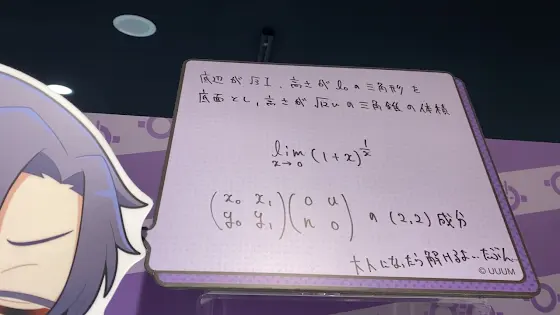 底辺が√3I、高さがloの三角形を
底面とし、高さが√2uの三角錐の体積
lim (1+x)^{1/x}
x→0
(x₀ x₁)(0 u)
(y₀ y₁)(n 0) の (2,2) 成分
大人になったら解けるよ…たぶん
© UUUM